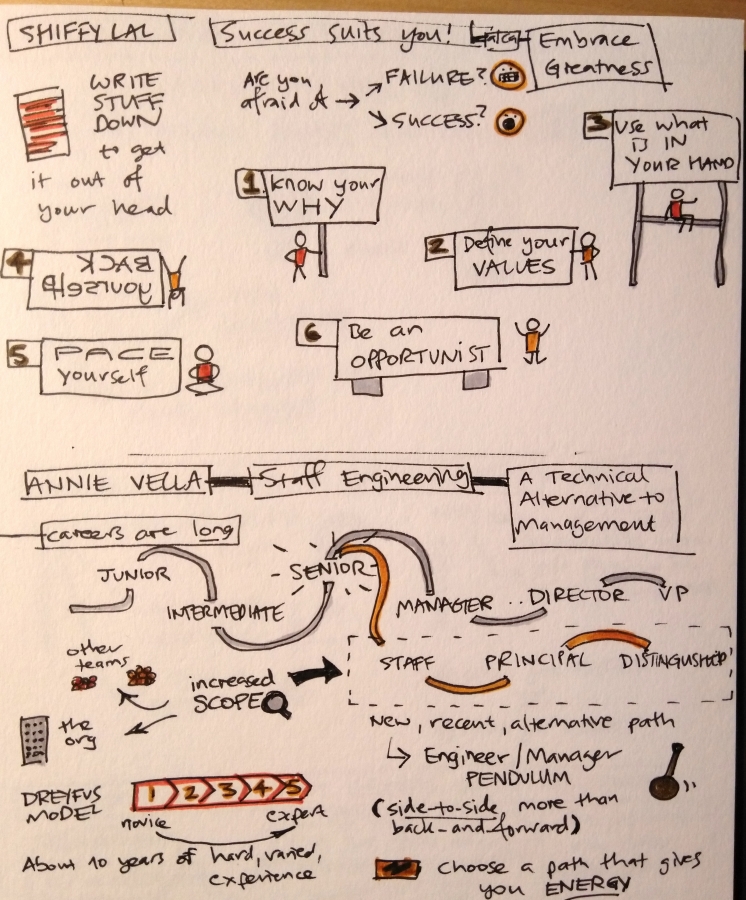 SHIFFY LAL
Success suits you!
Embrace
Greatness
WRITE
STUFF
DOWN
to get
it out of
your head
Are you
afraid of
FAILURE?
SUCCESS?
1. Know your
WHY
2 Define your
VALUES
3 Use what
IS IN
YOUR HAND
4 BACK
yourself
5 PACE
yourself
6 Be an
OPPORTUNIST
ANNIE VELLA
Staff Engineering
A Technical
Alternative to
Management
careers are long
JUNIOR
INTERMEDIATE
SENIOR
MANAGER
.. DIRECTOR
VP
STAFF
PRINCIPAL
other
teams
increased
SCOPE
the
org
New, recent, alternative path
Engineer/Manager
PENDULUM
(side-to-side, more than
back-and-forward)
DREYFUS
MODEL
1 2 3 4 5
novice
expert
About 10 years of hard, varied,
experience
choose a path that gives
you ENERGY